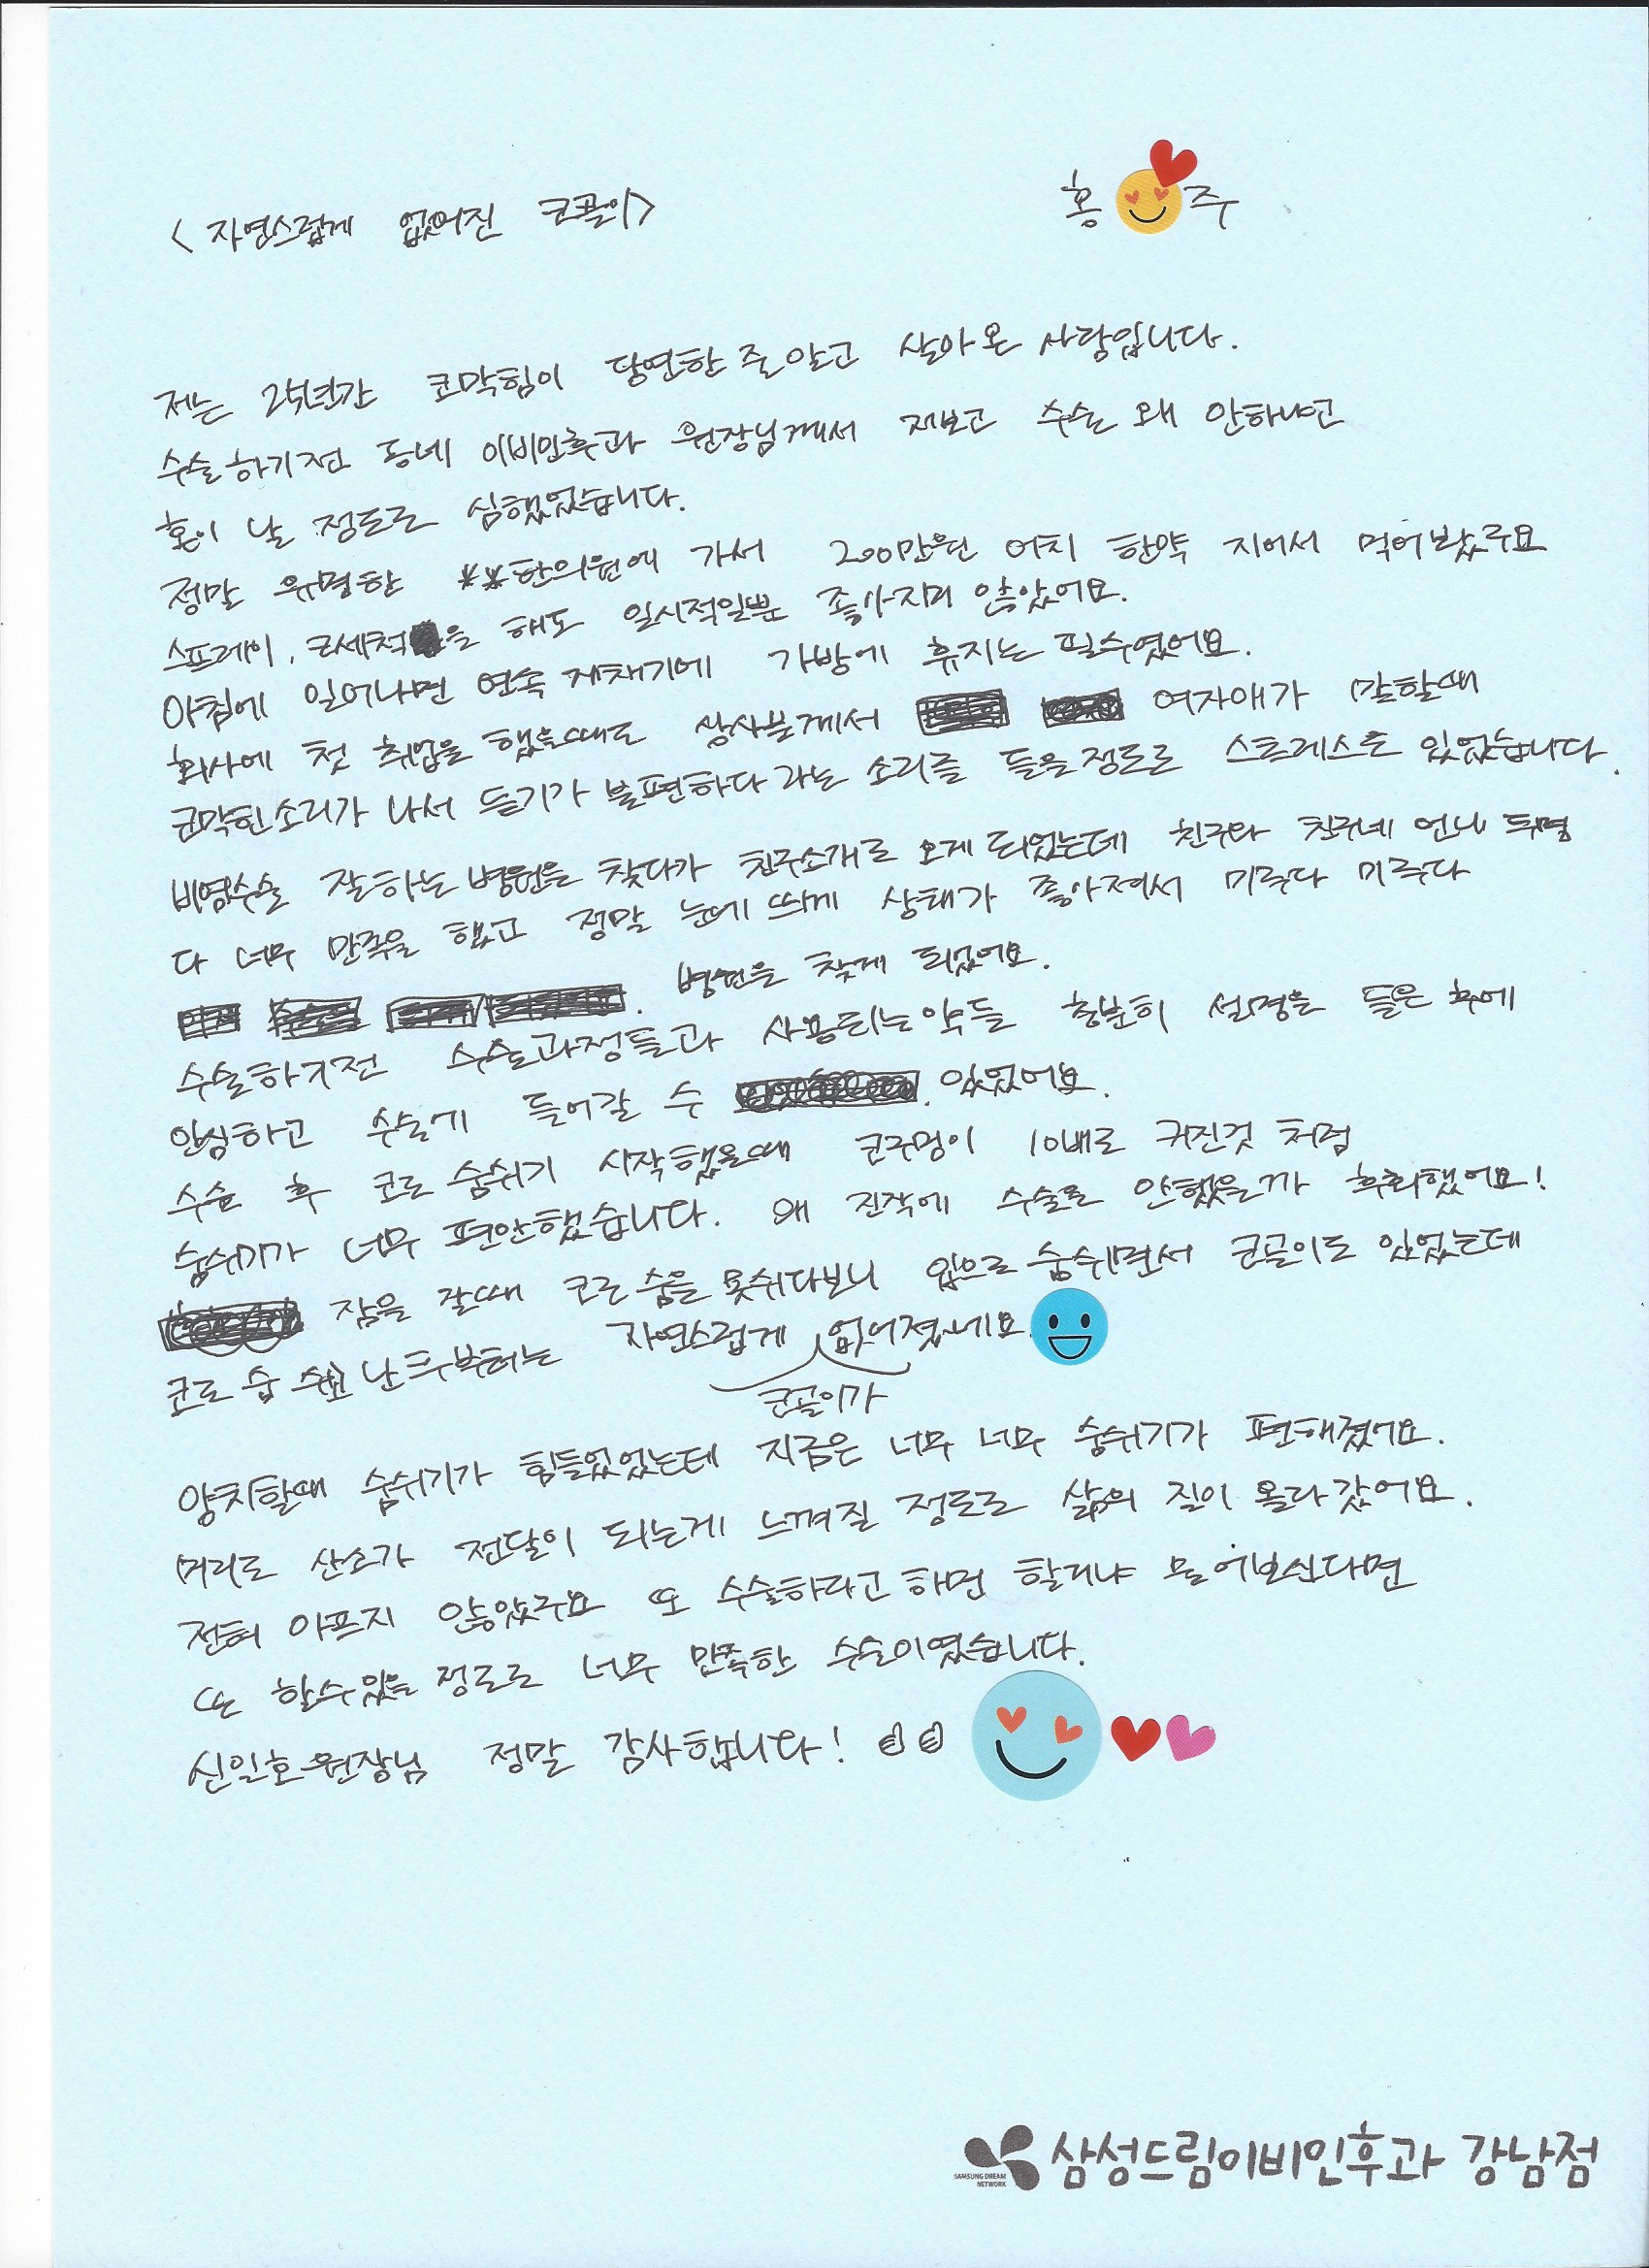 <자연스럽게 없어진 코골이>
홍 주
저는 25년간 코막힘이 당연한 줄 알고 살아온 사람입니다.
수술하기전 동네 이비인후과 원장님께서 저보고 수술 왜 안하냐고
혼이 날 정도로 심했었습니다.
정말 유명한 **한의원에 가서 200만원 어치 한약 지어서 먹어봤구요
스프레이, 코세척을 해도 일시적일뿐 좋아지지 않았어요.
아침에 일어나면 연속 재채기에 가방에 휴지는 필수였어요.
회사에 첫 취업을 했을때도 상사분께서 여자애가 말할때
코막힌소리가 나서 듣기가 불편하다 라는 소리를 들을정도로 스트레스도 있었습니다.
비염수술 잘하는 병원을 찾다가 친구소개로 오게 되었는데 친구와 친구네 언니 두명
다 너무 만족을 했고 정말 눈에 띄게 상태가 좋아져서 미루다 미루다
병원을 찾게 되었어요.
수술하기전 수술과정들과 사용되는 약들 충분히 설명을 들은 후에
안심하고 수술에 들어갈 수 있었어요.
수술 후 코로 숨쉬기 시작했을때 콧구멍이 10배로 커진것 처럼
숨쉬기가 너무 편안했습니다. 왜 진작에 수술을 안했을까 후회했어요!
잠을 잘때 코로 숨을 못쉬다보니 입으로 숨쉬면서 코골이도 있었는데
코로 숨 쉬고 난 후부터는 자연스럽게 없어졌네요.
코골이가
양치할때 숨쉬기가 힘들었었는데 지금은 너무 너무 숨쉬기가 편해졌어요.
머리로 산소가 전달이 되는게 느껴질 정도로 삶의 질이 올라갔어요.
전혀 아프지 않았구요 또 수술하라고 하면 할거냐 물어보신다면
또 할수있을 정도로 너무 만족한 수술이였습니다.
신일호원장님 정말 감사합니다!
SAMSUNG DREAM NETWORK
삼성드림이비인후과 강남점